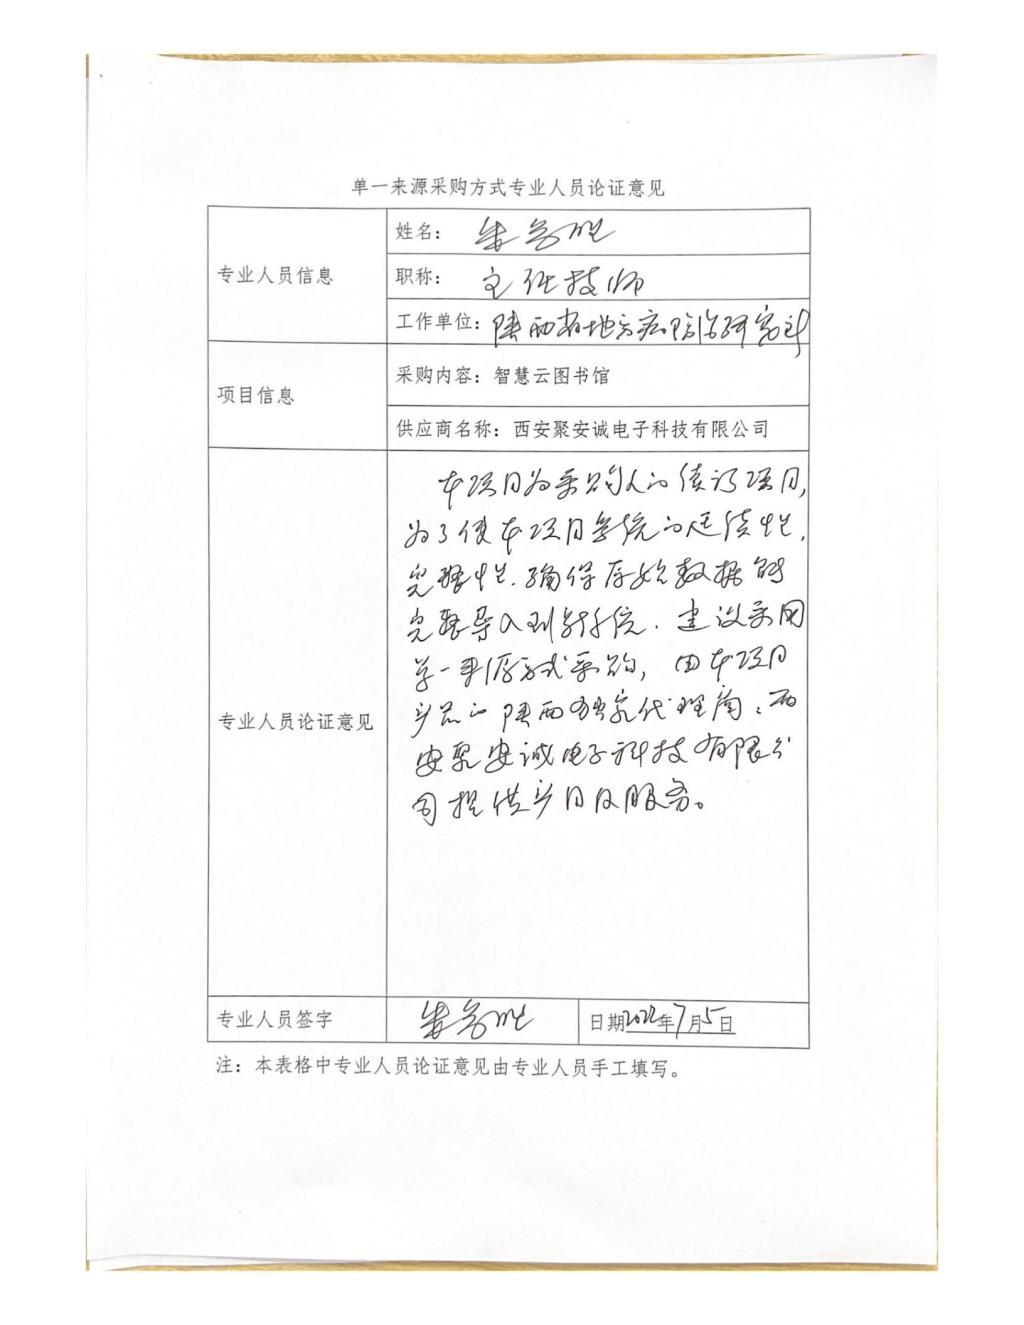 单一来源采购方式专业人员论证意见
专业人员信息
姓名：
职称：主任技师
工作单位：陕西省地方病防治研究所
项目信息
采购内容：智慧云图书馆
供应商名称：西安聚安诚电子科技有限公司
专业人员论证意见
本项目为采购人的续订项目，
为了使本项目系统的延续性、
完整性、确保原始数据的
完整导入到新系统．建议采用
单一来源方式采购，由本项目
产品的陕西独家代理商：西
安聚安诚电子科技有限公
司提供产品及服务。
专业人员签字
日期2022年7月5日
注：本表格中专业人员论证意见由专业人员手工填写。